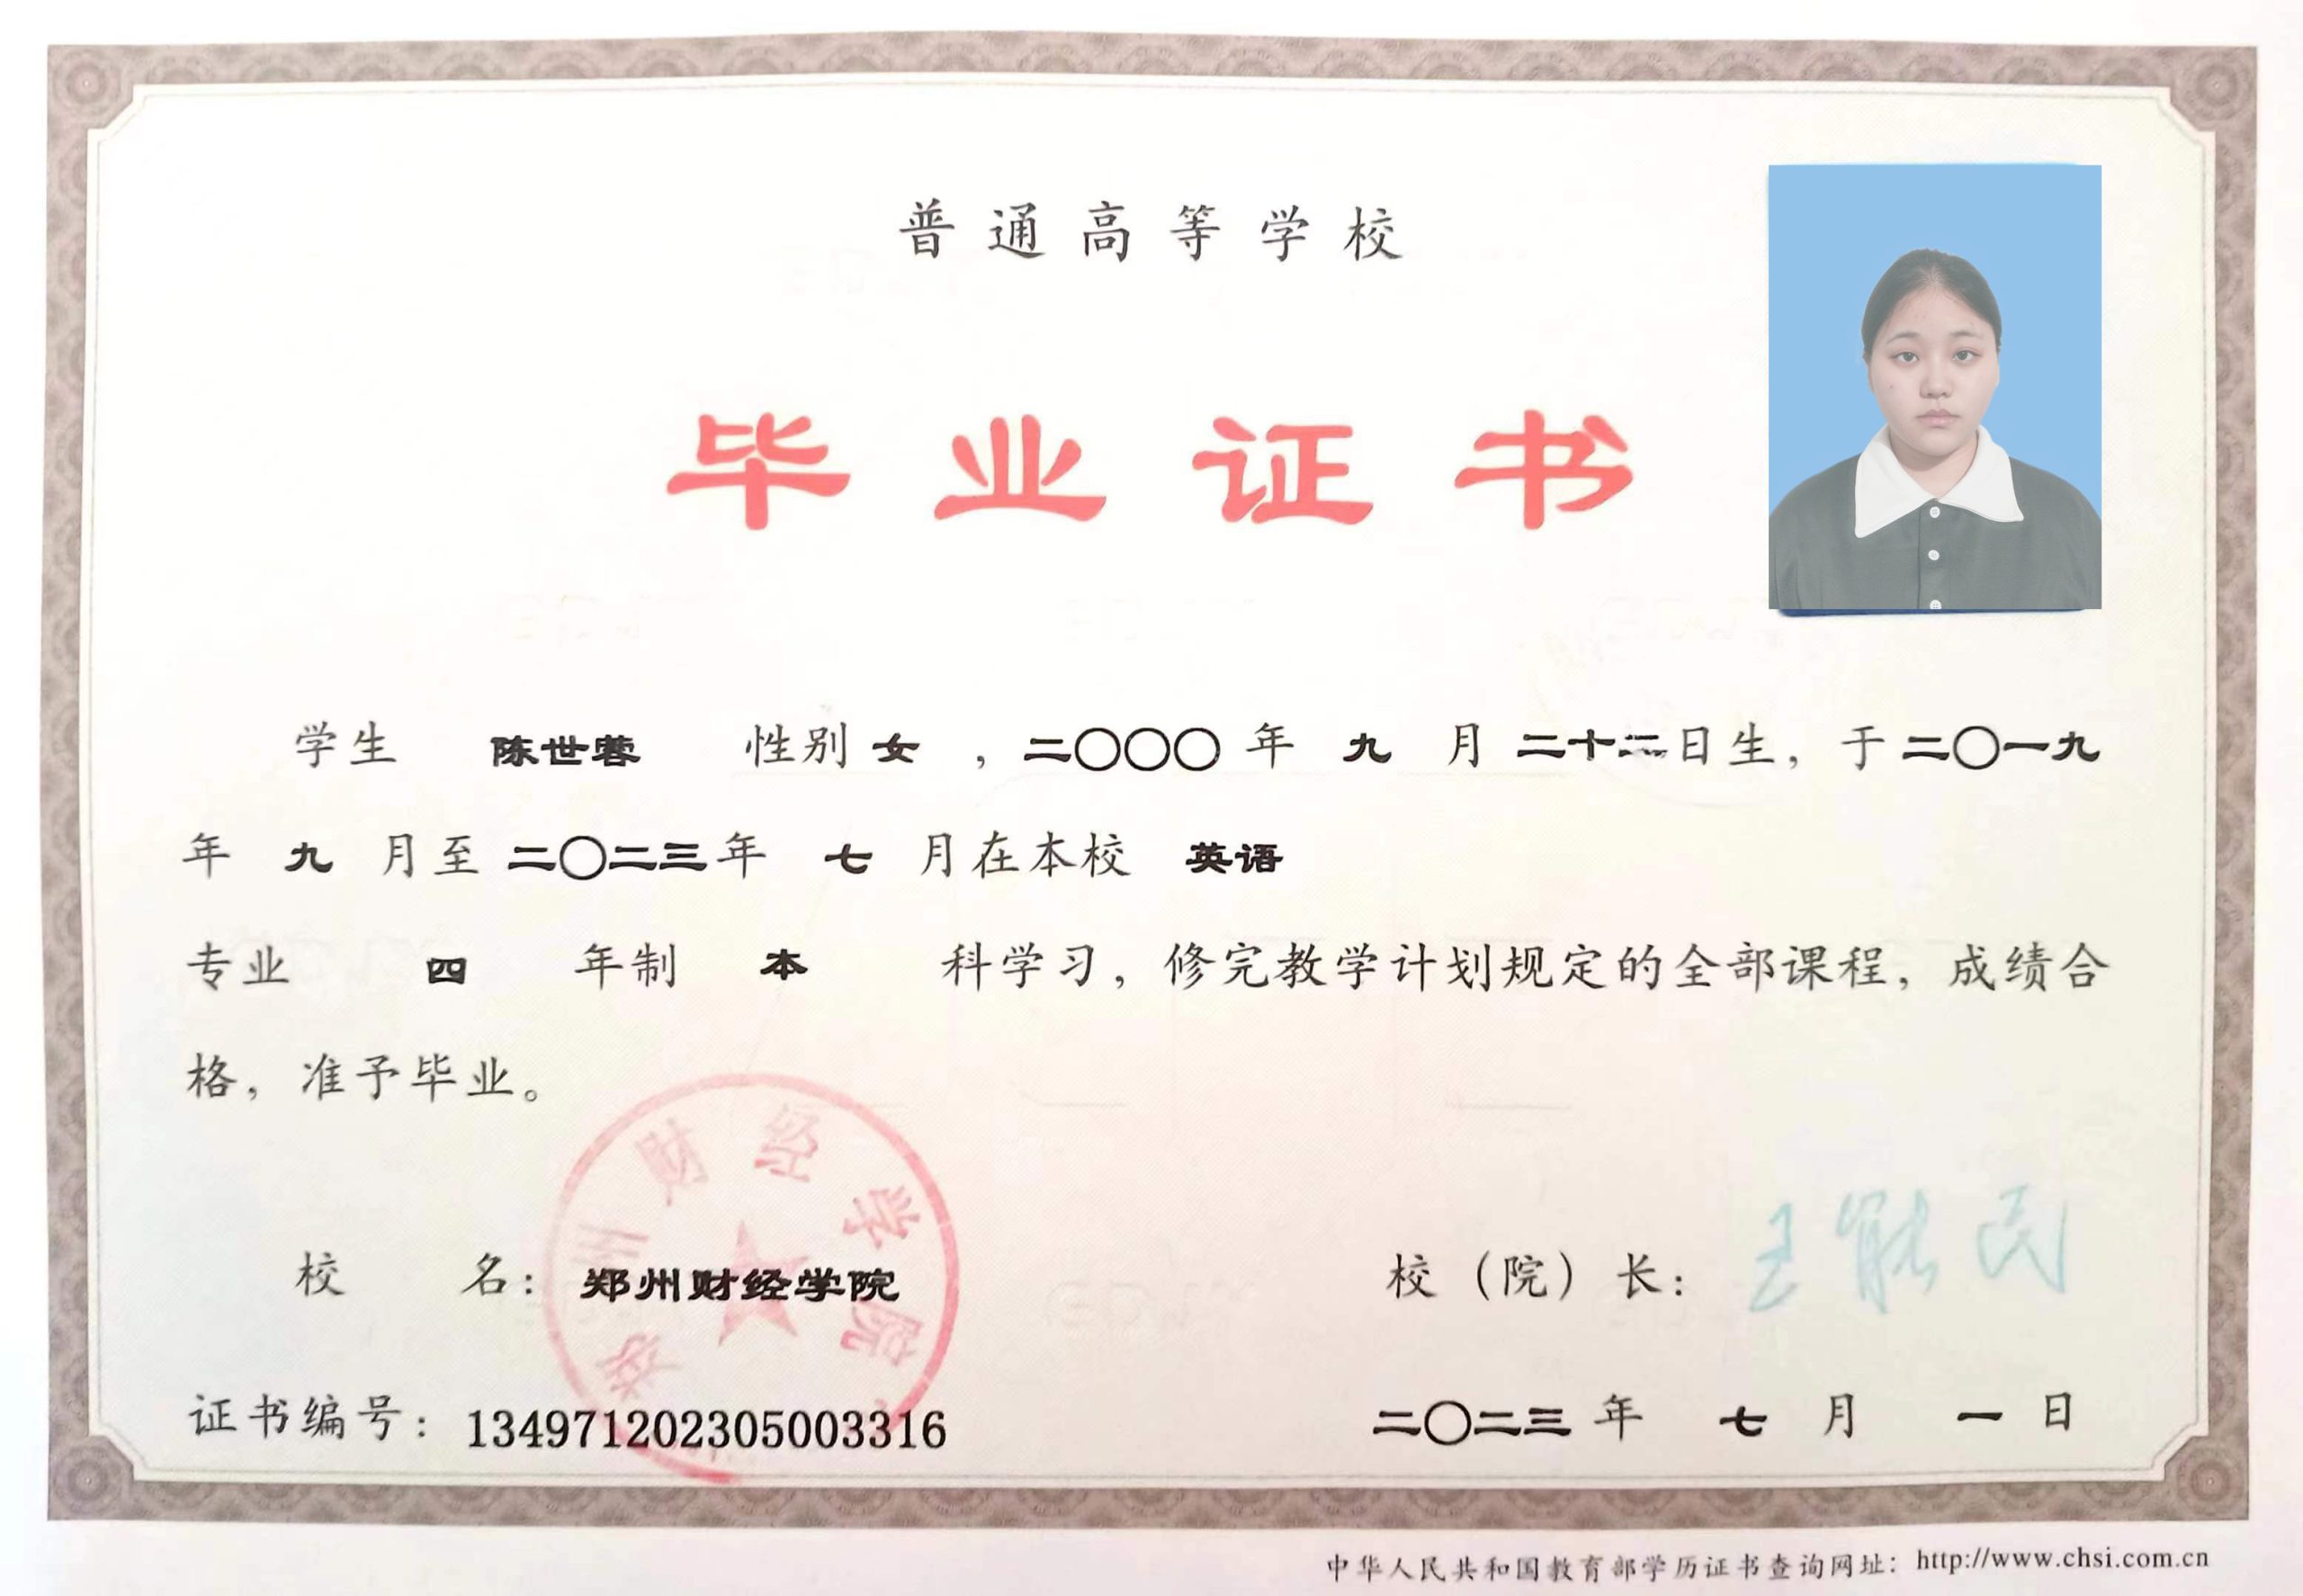 普通高等学校
毕业证书
学生 陈世蓉 性别 女 ，二〇〇〇 年 九 月 二十二日生，于 二〇一九
年 九 月至 二〇二三年 七 月在本校 英语
专业 四 年制 本 科学习，修完教学计划规定的全部课程，成绩合
格，准予毕业。
郑州财经学院
校 名：郑州财经学院
校（院）长：王能民
证书编号：134971202305003316
二〇二三 年 七 月 一 日
中华人民共和国教育部学历证书查询网址：http://www.chsi.com.cn